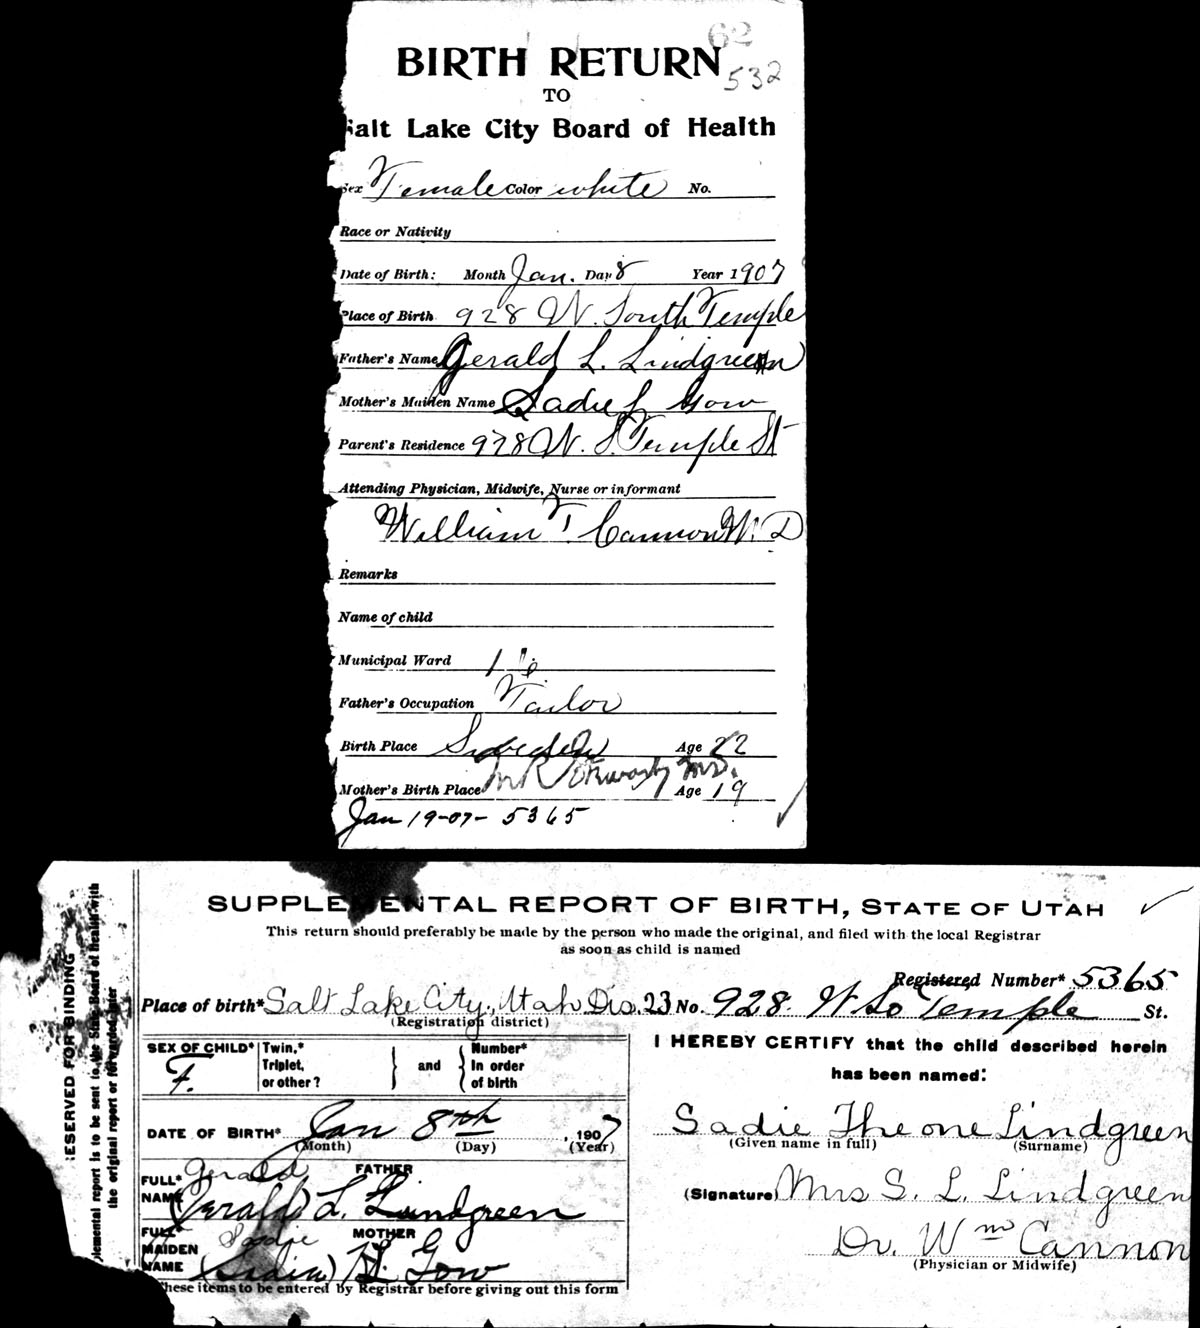 62
BIRTH RETURN
532
TO
Salt Lake City Board of Health
Sex Female Color white No.
Race or Nativity
Date of Birth: Month Jan. Day 8 Year 1907
Place of Birth 928 W. South Temple
Father's Name Gerald L. Lindgreen
Mother's Maiden Name Sadie L Gow
Parent's Residence 928 W. S. Temple St
Attending Physician, Midwife, Nurse or informant
William T. Cannon M. D
Remarks
Name of child
Municipal Ward
Father's Occupation Tailor
Birth Place Sweden Age 22
Mother's Birth Place Age 19
Jan 19-07- 5365
SUPPLEMENTAL REPORT OF BIRTH, STATE OF UTAH
This return should preferably be made by the person who made the original, and filed with the local Registrar
as soon as child is named
Registered Number* 5365
Place of birth* Salt Lake City, Utah Dis. 23 No. 928. W So Temple St.
(Registration district)
SEX OF CHILD* F. Twin,* Triplet, or other? } and { Number* In order of birth
DATE OF BIRTH* Jan 8th, 1907
(Month) (Day) (Year)
FATHER
FULL* NAME Gerald
(Gerald) L. Lindgreen
MOTHER
FULL* MAIDEN NAME Sadie
(Sadie) L. Gow
These items to be entered by Registrar before giving out this form
I HEREBY CERTIFY that the child described herein
has been named:
Sadie Theone Lindgreen
(Given name in full) (Surname)
(Signature) Mrs S. L. Lindgreen
Dr. Wm Cannon
(Physician or Midwife)
RESERVED FOR BINDING
report is to be sent to the State Board of Health with
the original report or